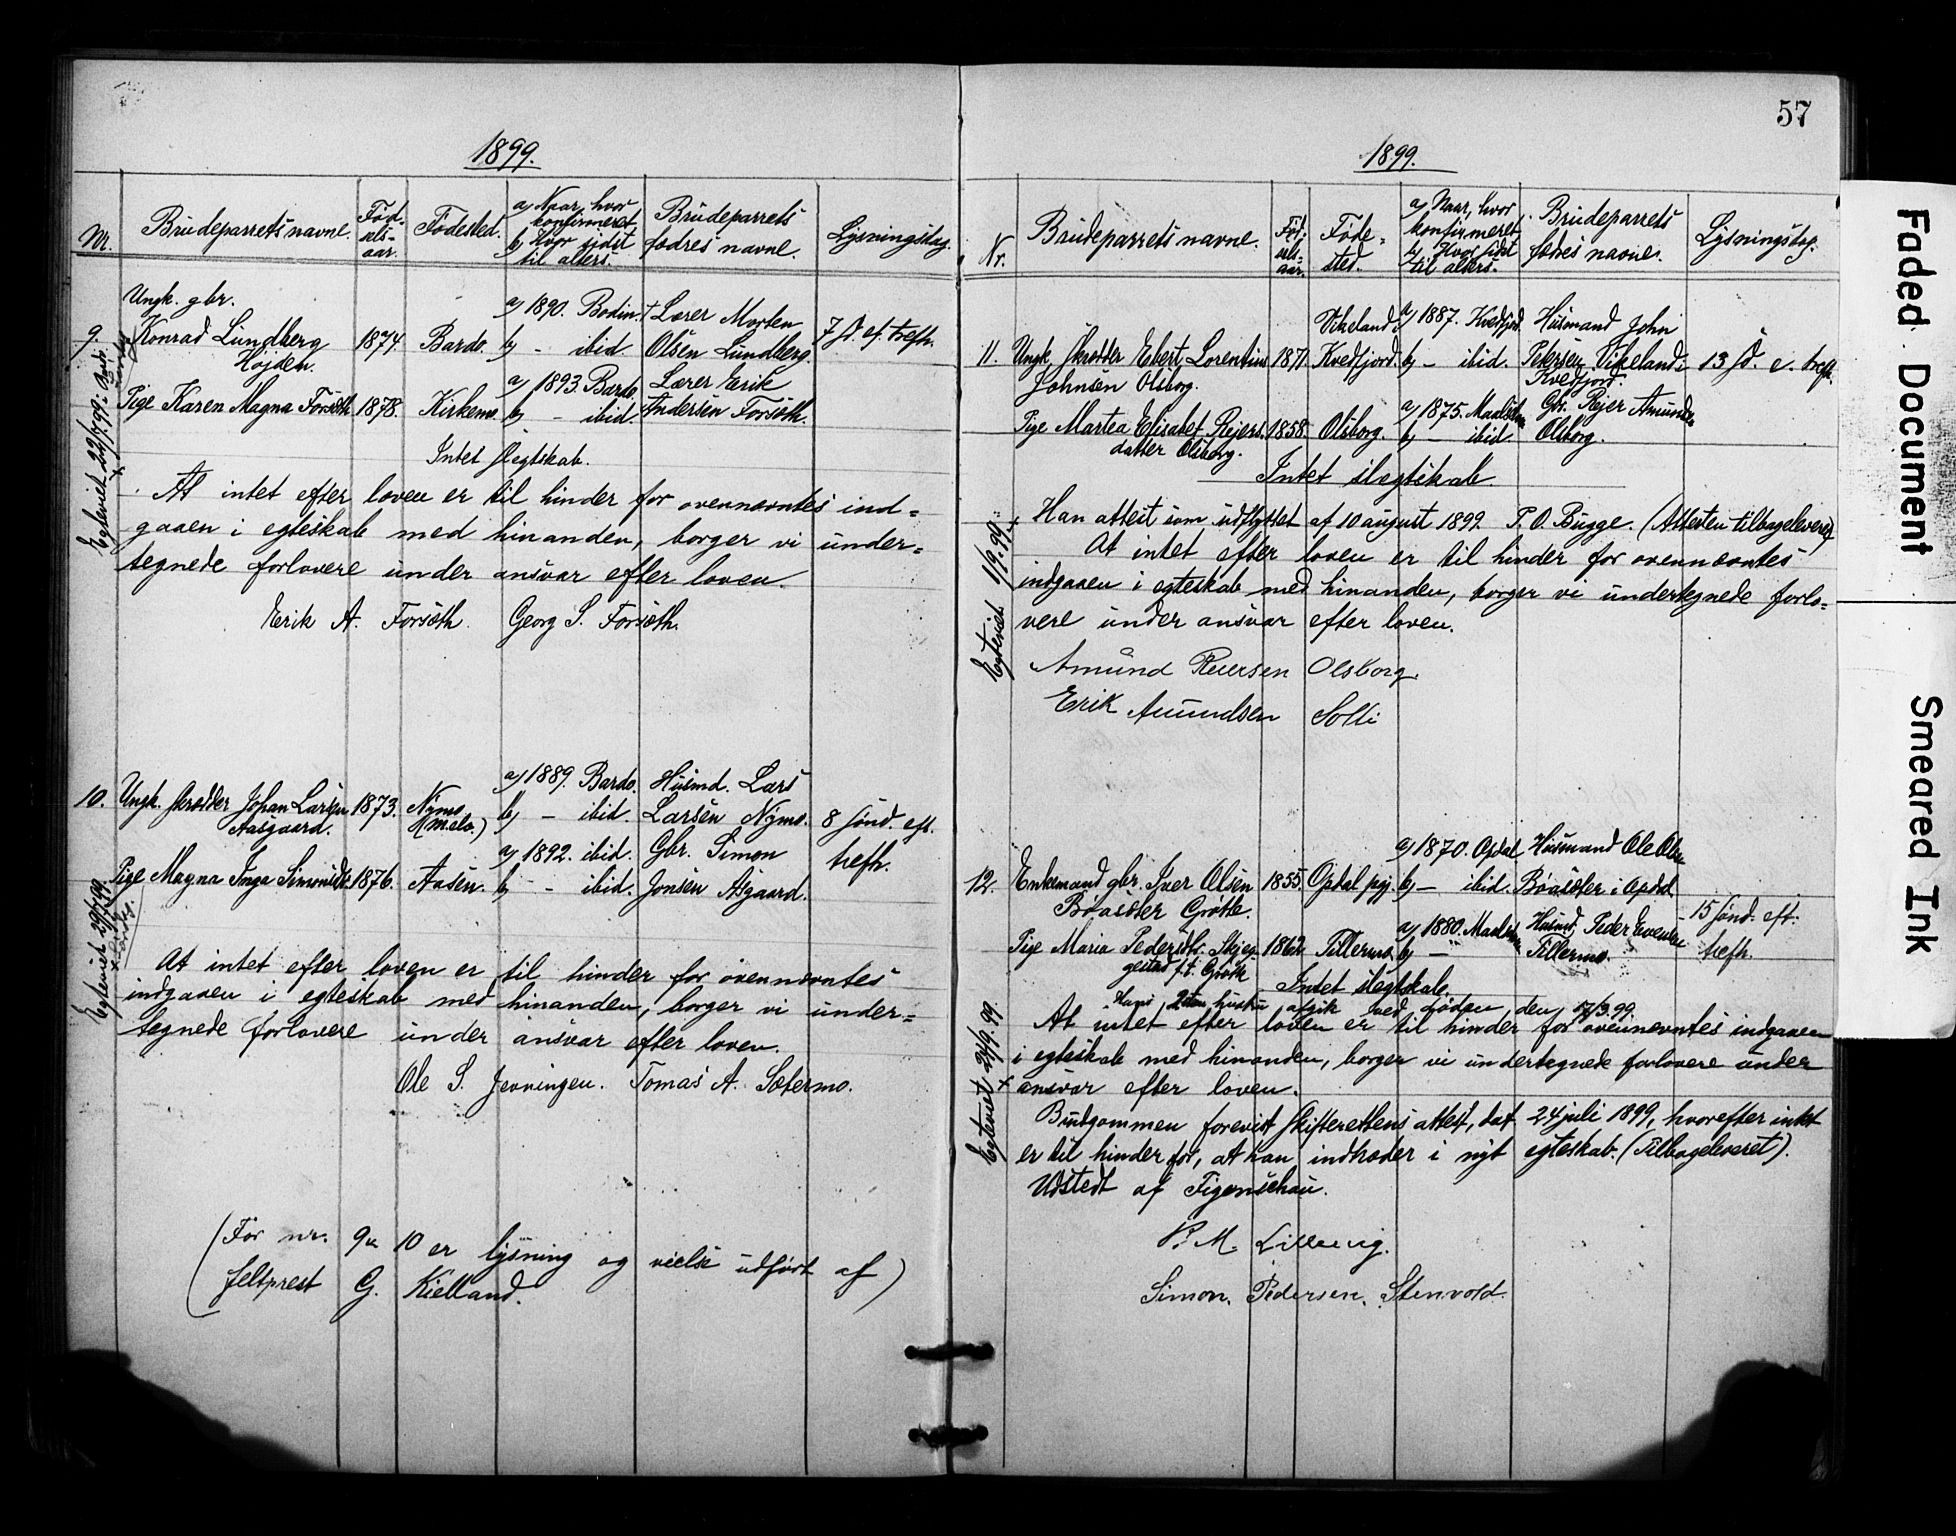 57
1899.
Nr. Brudeparrets navne. Fød-sels-aar. Fødested. a) Naar, hvor konfirmeret b) Hvor sidst til alters. Brudeparrets fædres navne. Lysningsdag.
Ungk. gbr.
9. Konrad Lundberg Højden. 1874. Bardo. a) 1890. Bodin. b) – ibid. † Lærer Morten Olsen Lundberg 7 s. ef. trefh.
Pige Karen Magna Forsæth 1878. Kirkemo. a) 1893. Bardo. b) – ibid. Lærer Erik Andersen Forsæth.
Intet slegtskab.
At intet efter loven er til hinder for ovennævntes ind=
gaaen i egteskab med hinanden, borger vi under=
tegnede forlovere under ansvar efter loven.
Erik A. Forsæth. Georg S. Forsæth.
Egteviet 22/7.99.
10. Ungk. skrædder Johan Larsen Aasgaard. 1873. Nymo (Melø.) a) 1889. Bardo. b) – ibid. Husmd. Lars Larsen Nymo. 8 sønd. eft. trefh.
Pige Magna Inga Simonsdt. 1876. Aasen. a) 1892. ibid. b) – ibid. Gbr. Simon Jonsen Asgaard.
At intet efter loven er til hinder for ovennævntes
indgaaen i egteskab med hinanden, borger vi under=
tegnede forlovere under ansvar efter loven.
Ole S. Jevningen. Tomas A. Sætermo.
Egteviet 29/7.99.
(For nr. 9 & 10 er lysning og vielse udført af
feltprest G. Kielland.)
1899.
Nr. Brudeparrets navne. Fød-sels-aar. Føde=sted. a) Naar, hvor konfirmeret b) Hvor sidst til alters. Brudeparrets fædres navne. Lysningsdag.
11. Ungk. skrædder Ebert Lorentius Johnsen Olsborg. 1871. Vikeland i Kvedfjord. a) 1887. Kvedfjord. b) – ibid. Husmand John Petersen Vikeland i Kvedfjord. 13 s. e. trefh.
Pige Martea Elisabet Rejers=datter Olsborg. 1858. Olsborg. a) 1875. b) – ibid. Gbr. Rejer Olsborg.
Intet slegtskab.
Han attest som udflyttet af 10 august 1899. P. O. Bugge. (Attesten tilbageleveret)
At intet efter loven er til hinder for ovennævntes
indgaaen i egteskab med hinanden, borger vi undertegnede forlo=
vere under ansvar efter loven.
Amund Reiersen Olsborg.
Erik Amundsen Solli
Egteviet 1/9.99
12. Enkemand gbr. Iver Olsen Bøasæter Grøtte. 1855. Opdal pgj. a) 1870. Opdal b) – ibid. Husmand Ole Olsen Bøasæter i Opdal 15 sønd. eft. trefh.
Pige Maria Pedersdt. 1862 Tillermo. a) 1880. b) – " Husmd. Peder Evensen Tillermo.
Intet slegtskab.
Hans hustru afgik ved døden den 17/3.99.
At intet efter loven er til hinder for ovennævntes indgaaen
i egteskab med hinanden, borger vi undertegnede forlovere under
ansvar efter loven.
Egteviet 24/9.99
Brudgommen forevist skifterettens attest, dat. 24 juli 1899, hvorefter intet
er til hinder for, at han indtræder i nyt egteskab. (Tilbageleveret).
Udstedt af Figenschau.
P. M.
Simon Pedersen Stenvold.
Faded Document
Smeared Ink